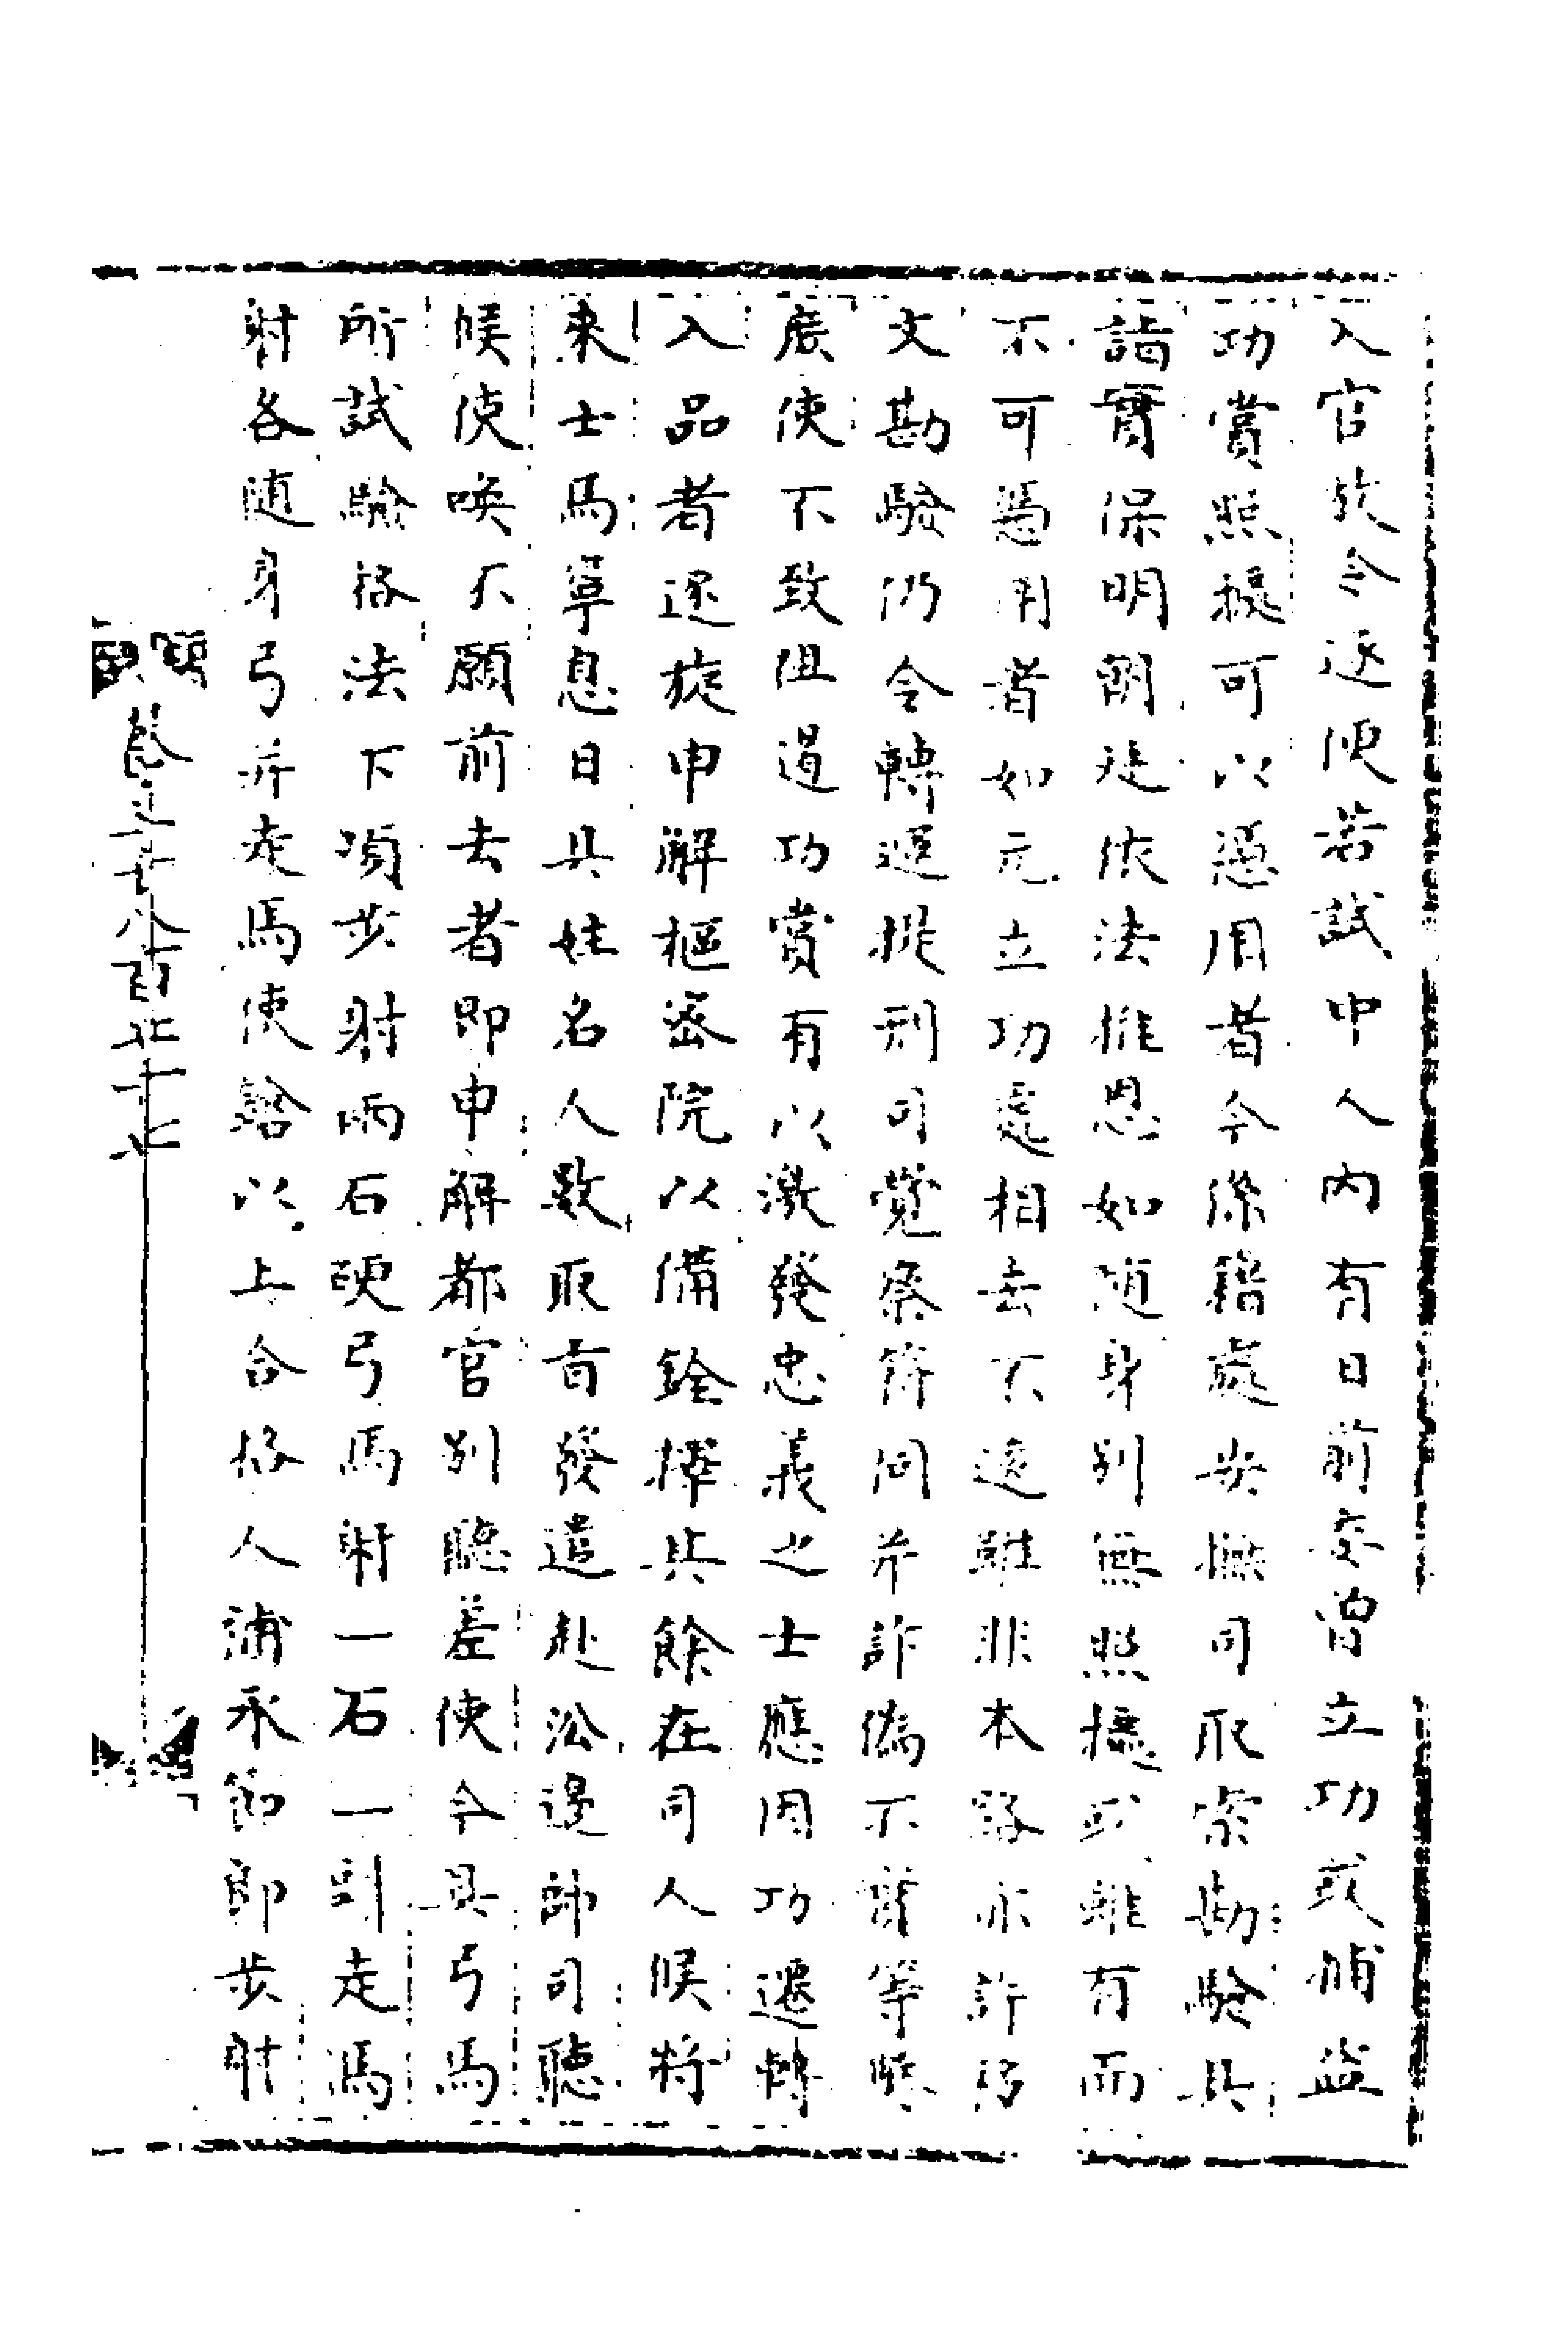 入官效令逐便若試中人內有日前委曾立功或捕盜
功賞照據可以憑用者令係籍處安撫司取索勘驗具
詣實保明朝廷依法推恩如隨身別無照據或雖有而
不可憑用者如元立功處相去不遠雖非本路亦許移
文勘驗仍令轉運提刑司覺察符同并詐偽不實等
底使不致阻遏功賞有以激發忠義之士應因功遷轉
入品者逐旋申解樞密院以備銓擇其餘在司人候將
來士馬寧息日具姓名人數取旨發遣赴沿邊帥司聽
候使喚不願前去者即申解都官別聽差使令具弓馬
所試驗格法下項步射兩石硬弓馬射一石一到走馬
射各隨身弓并走馬使鎗以上合格人補承節郎步射
卷之
八百九十七